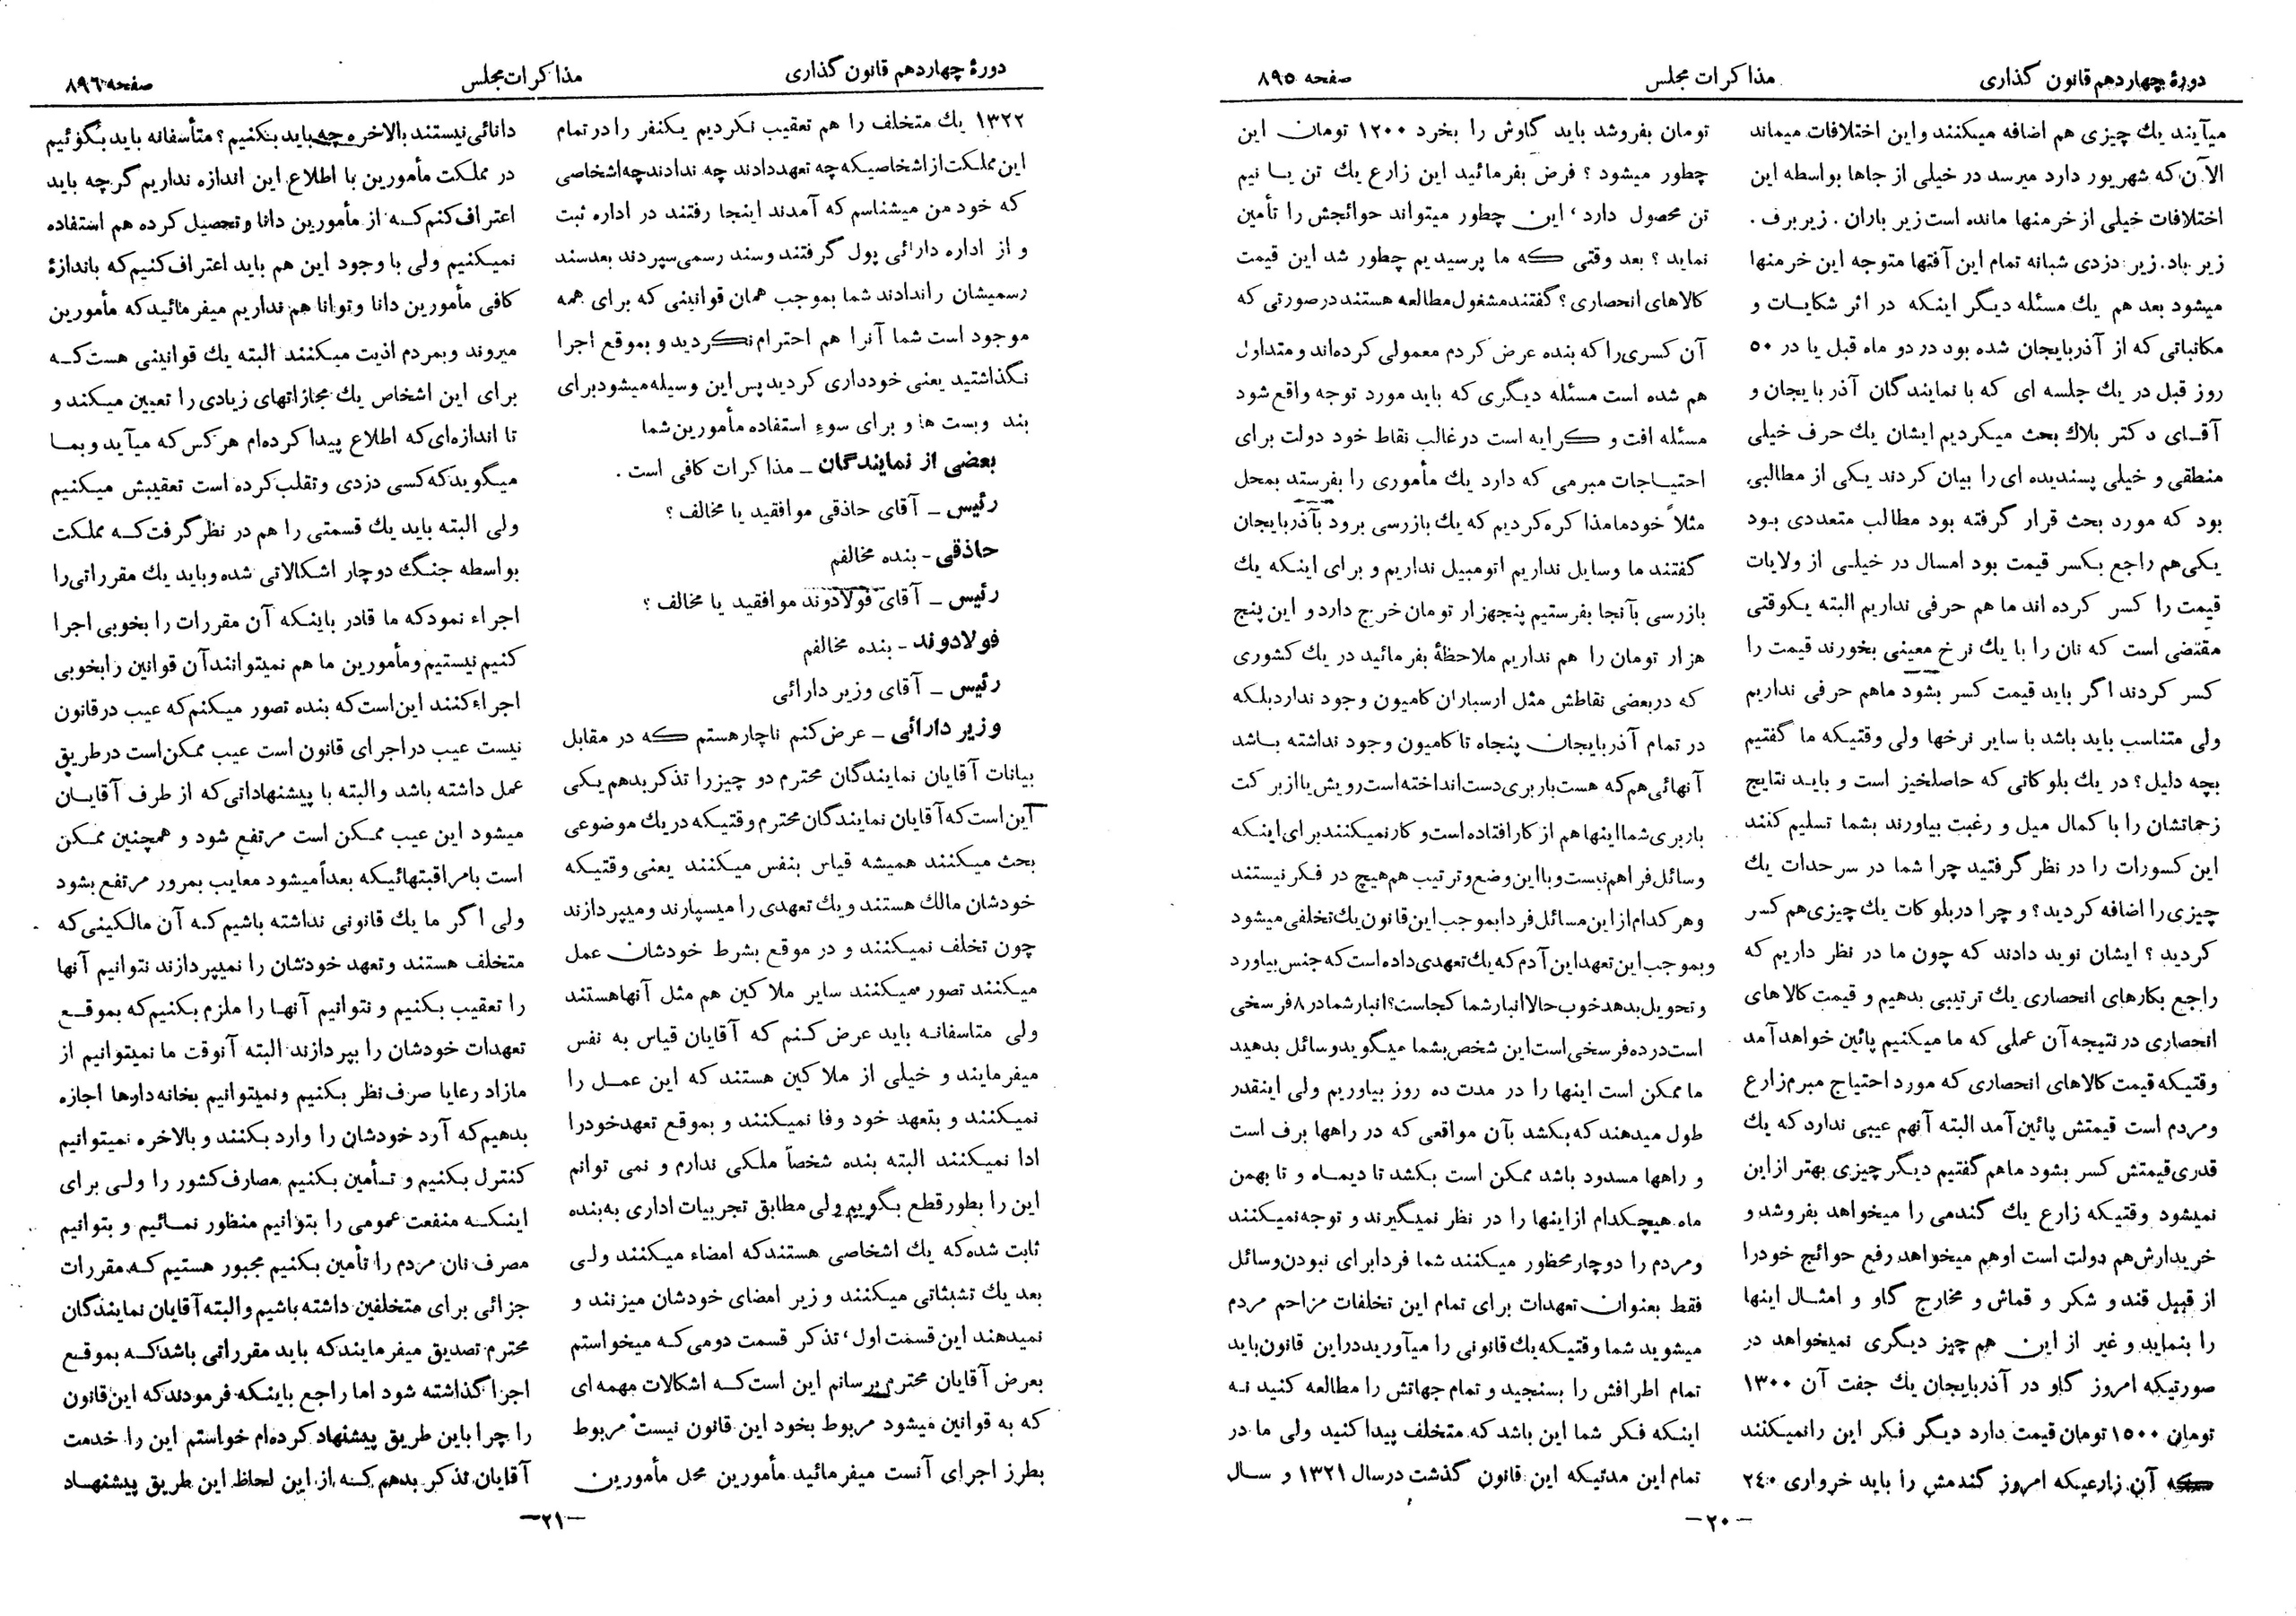 دورهٔ چهاردهم قانون گذاری
مذاکرات مجلس
صفحه ۸۹۵
میآیند یك چیزی هم اضافه میکنند و این اختلافات میماند
الآن که شهریور دارد میرسد در خیلی از جاها بواسطه این
اختلافات خیلی از خرمنها مانده است زیر باران . زیر برف .
زیر باد. زیر دزدی شبانه تمام این آفتها متوجه این خرمنها
میشود بعد هم یك مسئله دیگر اینکه در اثر شکایات و
مکاتباتی که از آذربایجان شده بود در دو ماه قبل یا در ۵۰
روز قبل در یك جلسه ای که با نمایندگان آذربایجان و
آقای دکتر بلاك بحث میکردیم ایشان یك حرف خیلی
منطقی و خیلی پسندیده ای را بیان کردند یکی از مطالبی
بود که مورد بحث قرار گرفته بود مطالب متعددی بود
یکی هم راجع بکسر قیمت بود امسال در خیلی از ولایات
قیمت را کسر کرده اند ما هم حرفی نداریم البته یکوقتی
مقتضی است که نان را با یك نرخ معینی بخورند قیمت را
کسر کردند اگر باید قیمت کسر بشود ماهم حرفی نداریم
ولی متناسب باید باشد با سایر نرخها ولی وقتیکه ما گفتیم
بچه دلیل؟ در یك بلوکاتی که حاصلخیز است و باید نتایج
زحماتشان را با کمال میل و رغبت بیاورند بشما تسلیم کنند
این کسورات را در نظر گرفتید چرا شما در سرحدات یك
چیزی را اضافه کردید؟ و چرا در بلوکات یك چیزی هم کسر
کردید ؟ ایشان نوید دادند که چون ما در نظر داریم که
راجع بکارهای انحصاری یك ترتیبی بدهیم و قیمت کالاهای
انحصاری در نتیجه آن عملی که ما میکنیم پائین خواهد آمد
وقتیکه قیمت کالاهای انحصاری که مورد احتیاج مبرم زارع
ومردم است قیمتش پائین آمد البته آنهم عیبی ندارد که یك
قدری قیمتش کسر بشود ماهم گفتیم دیگر چیزی بهتر از این
نمیشود وقتیکه زارع یك گندمی را میخواهد بفروشد و
خریدارش هم دولت است او هم میخواهد رفع حوائج خودرا
از قبیل قند و شکر و قماش و مخارج گاو و امثال اینها
را بنماید و غیر از این هم چیز دیگری نمیخواهد در
صورتیکه امروز گاو در آذربایجان یك جفت آن ۱۳۰۰
تومان ۱۵۰۰ تومان قیمت دارد دیگر فکر این را نمیکنند
که آن زارعیکه امروز گندمش را باید خرواری ۲۴۰
تومان بفروشد باید گاوش را بخرد ۱۲۰۰ تومان این
چطور میشود ؟ فرض بفرمائید این زارع یك تن یا نیم
تن محصول دارد، این چطور میتواند حوائجش را تأمین
نماید ؟ بعد وقتی که ما پرسیدیم چطور شد این قیمت
کالاهای انحصاری؟ گفتند مشغول مطالعه هستند در صورتی که
آن کسری را که بنده عرض کردم معمولی کرده اند و متداول
هم شده است مسئله دیگری که باید مورد توجه واقع شود
مسئله افت و کرایه است در غالب نقاط خود دولت برای
احتیاجات مبرمی که دارد یك مأموری را بفرستد بمحل
مثلاً خودمامذاکره کردیم که یك بازرسی برود بآذربایجان
گفتند ما وسایل نداریم اتومبیل نداریم و برای اینکه یك
بازرسی بآنجا بفرستیم پنجهزار تومان خرج دارد و این پنج
هزار تومان را هم نداریم ملاحظهٔ بفرمائید در یك کشوری
که در بعضی نقاطش مثل ارسباران کامیون وجود ندارد بلکه
در تمام آذربایجان پنجاه تا کامیون وجود نداشته باشد
آنهائی هم که هست باربری دست انداخته است رویش یا از برکت
باربری شما اینها هم از کار افتاده است و کار نمیکنند برای اینکه
وسائل فراهم نیست و با این وضع و ترتیب هم هیچ در فکر نیستند
وهر کدام از این مسائل فردا بموجب این قانون یك تخلفی میشود
وبموجب این تعهد این آدم که یك تعهدی داده است که جنس بیاورد
و تحویل بدهد خوب حالا انبار شما کجاست؟ انبار شما در ۸ فرسخی
است در ده فرسخی است این شخص بشما میگوید وسائل بدهید
ما ممکن است اینها را در مدت ده روز بیاوریم ولی اینقدر
طول میدهند که بکشد بآن مواقعی که در راهها برف است
و راهها مسدود باشد ممکن است بکشد تا دیماه و تا بهمن
ماه هیچکدام از اینها را در نظر نمیگیرند و توجه نمیکنند
ومردم را دوچار محظور میکنند شما فردا برای نبودن وسائل
فقط بعنوان تعهدات برای تمام این تخلفات مزاحم مردم
میشوید شما وقتیکه یك قانونی را میآورید در این قانون باید
تمام اطرافش را بسنجید و تمام جهاتش را مطالعه کنید نه
اینکه فکر شما این باشد که متخلف پیدا کنید ولی ما در
تمام این مدتیکه این قانون گذشت در سال ۱۳۲۱ و سال
-۲۰-
دورهٔ چهاردهم قانون گذاری
مذاکرات مجلس
صفحه ۸۹۶
۱۳۲۲ یك متخلف را هم تعقیب نکردیم یکنفر را در تمام
این مملکت از اشخاصیکه چه تعهد دادند چه ندادند چه اشخاصی
که خود من میشناسم که آمدند اینجا رفتند در اداره ثبت
و از اداره دارائی پول گرفتند وسند رسمی سپردند بعد سند
رسمیشان را ندادند شما بموجب همان قوانینی که برای همه
موجود است شما آنرا هم احترام نکردید و بموقع اجرا
نگذاشتید یعنی خودداری کردید پس این وسیله میشود برای
بند وبست ها و برای سوء استفاده مأمورین شما
بعضی از نمایندگان ـ مذاکرات کافی است .
رئیس ـ آقای حاذقی موافقید یا مخالف ؟
حاذقی - بنده مخالفم
رئیس ـ آقای فولادوند موافقید یا مخالف ؟
فولادوند - بنده مخالفم
رئیس ـ آقای وزیر دارائی
وزیر دارائی ـ عرض کنم ناچار هستم که در مقابل
بیانات آقایان نمایندگان محترم دو چیز را تذکر بدهم یکی
این است که آقایان نمایندگان محترم وقتیکه در یك موضوعی
بحث میکنند همیشه قیاس بنفس میکنند یعنی وقتیکه
خودشان مالك هستند و یك تعهدی را میسپارند و میپردازند
چون تخلف نمیکنند و در موقع بشرط خودشان عمل
میکنند تصور میکنند سایر ملاکین هم مثل آنها هستند
ولی متاسفانه باید عرض کنم که آقایان قیاس به نفس
میفرمایند و خیلی از ملاکین هستند که این عمل را
نمیکنند و بتعهد خود وفا نمیکنند و بموقع تعهد خودرا
ادا نمیکنند البته بنده شخصاً ملکی ندارم و نمی توانم
این را بطور قطع بگویم ولی مطابق تجربیات اداری به بنده
ثابت شده که یك اشخاصی هستند که امضاء میکنند ولی
بعد یك تشبثاتی میکنند و زیر امضای خودشان میزنند و
نمیدهند این قسمت اول، تذکر قسمت دومی که میخواستم
بعرض آقایان محترم برسانم این است که اشکالات مهمه ای
که به قوانین میشود مربوط بخود این قانون نیست مربوط
بطرز اجرای آنست میفرمائید مأمورین محل مأمورین
دانائی نیستند بالاخره چه باید بکنیم؟ متأسفانه باید بگوئیم
در مملکت مأمورین با اطلاع این اندازه نداریم گرچه باید
اعتراف کنم که از مأمورین دانا و تحصیل کرده هم استفاده
نمیکنیم ولی با وجود این هم باید اعتراف کنیم که باندازهٔ
کافی مأمورین دانا وتوانا هم نداریم میفرمائید که مأمورین
میروند وبمردم اذیت میکنند البته یك قوانینی هست که
برای این اشخاص یك مجازاتهای زیادی را تعیین میکند و
تا اندازه ای که اطلاع پیدا کرده ام هر کس که میآید و بما
میگوید که کسی دزدی و تقلب کرده است تعقیبش میکنیم
ولی البته باید یك قسمتی را هم در نظر گرفت که مملکت
بواسطه جنگ دوچار اشکالاتی شده و باید یك مقرراتی را
اجراء نمود که ما قادر باینکه آن مقررات را بخوبی اجرا
کنیم نیستیم و مأمورین ما هم نمیتوانند آن قوانین را بخوبی
اجراء کنند این است که بنده تصور میکنم که عیب در قانون
نیست عیب در اجرای قانون است عیب ممکن است در طریق
عمل داشته باشد و البته با پیشنهاداتی که از طرف آقایان
میشود این عیب ممکن است مرتفع شود و همچنین ممکن
است بامراقبتهائیکه بعداً میشود معایب بمرور مرتفع بشود
ولی اگر ما یك قانونی نداشته باشیم که آن مالکینی که
متخلف هستند و تعهد خودشان را نمیپردازند نتوانیم آنها
را تعقیب بکنیم و نتوانیم آنها را ملزم بکنیم که بموقع
تعهدات خودشان را بپردازند البته آنوقت ما نمیتوانیم از
مازاد رعایا صرف نظر بکنیم و نمیتوانیم بخانه دارها اجازه
بدهیم که آرد خودشان را وارد بکنند و بالاخره نمیتوانیم
کنترل بکنیم و تأمین بکنیم مصارف کشور را ولی برای
اینکه منفعت عمومی را بتوانیم منظور نمائیم و بتوانیم
مصرف نان مردم را تأمین بکنیم مجبور هستیم که مقررات
جزائی برای متخلفین داشته باشیم و البته آقایان نمایندگان
محترم تصدیق میفرمایند که باید مقرراتی باشد که بموقع
اجرا گذاشته شود اما راجع باینکه فرمودند که این قانون
را چرا باین طریق پیشنهاد کرده ام خواستم این را خدمت
آقایان تذکر بدهم که از این لحاظ این طریق پیشنهاد
-۲۱-